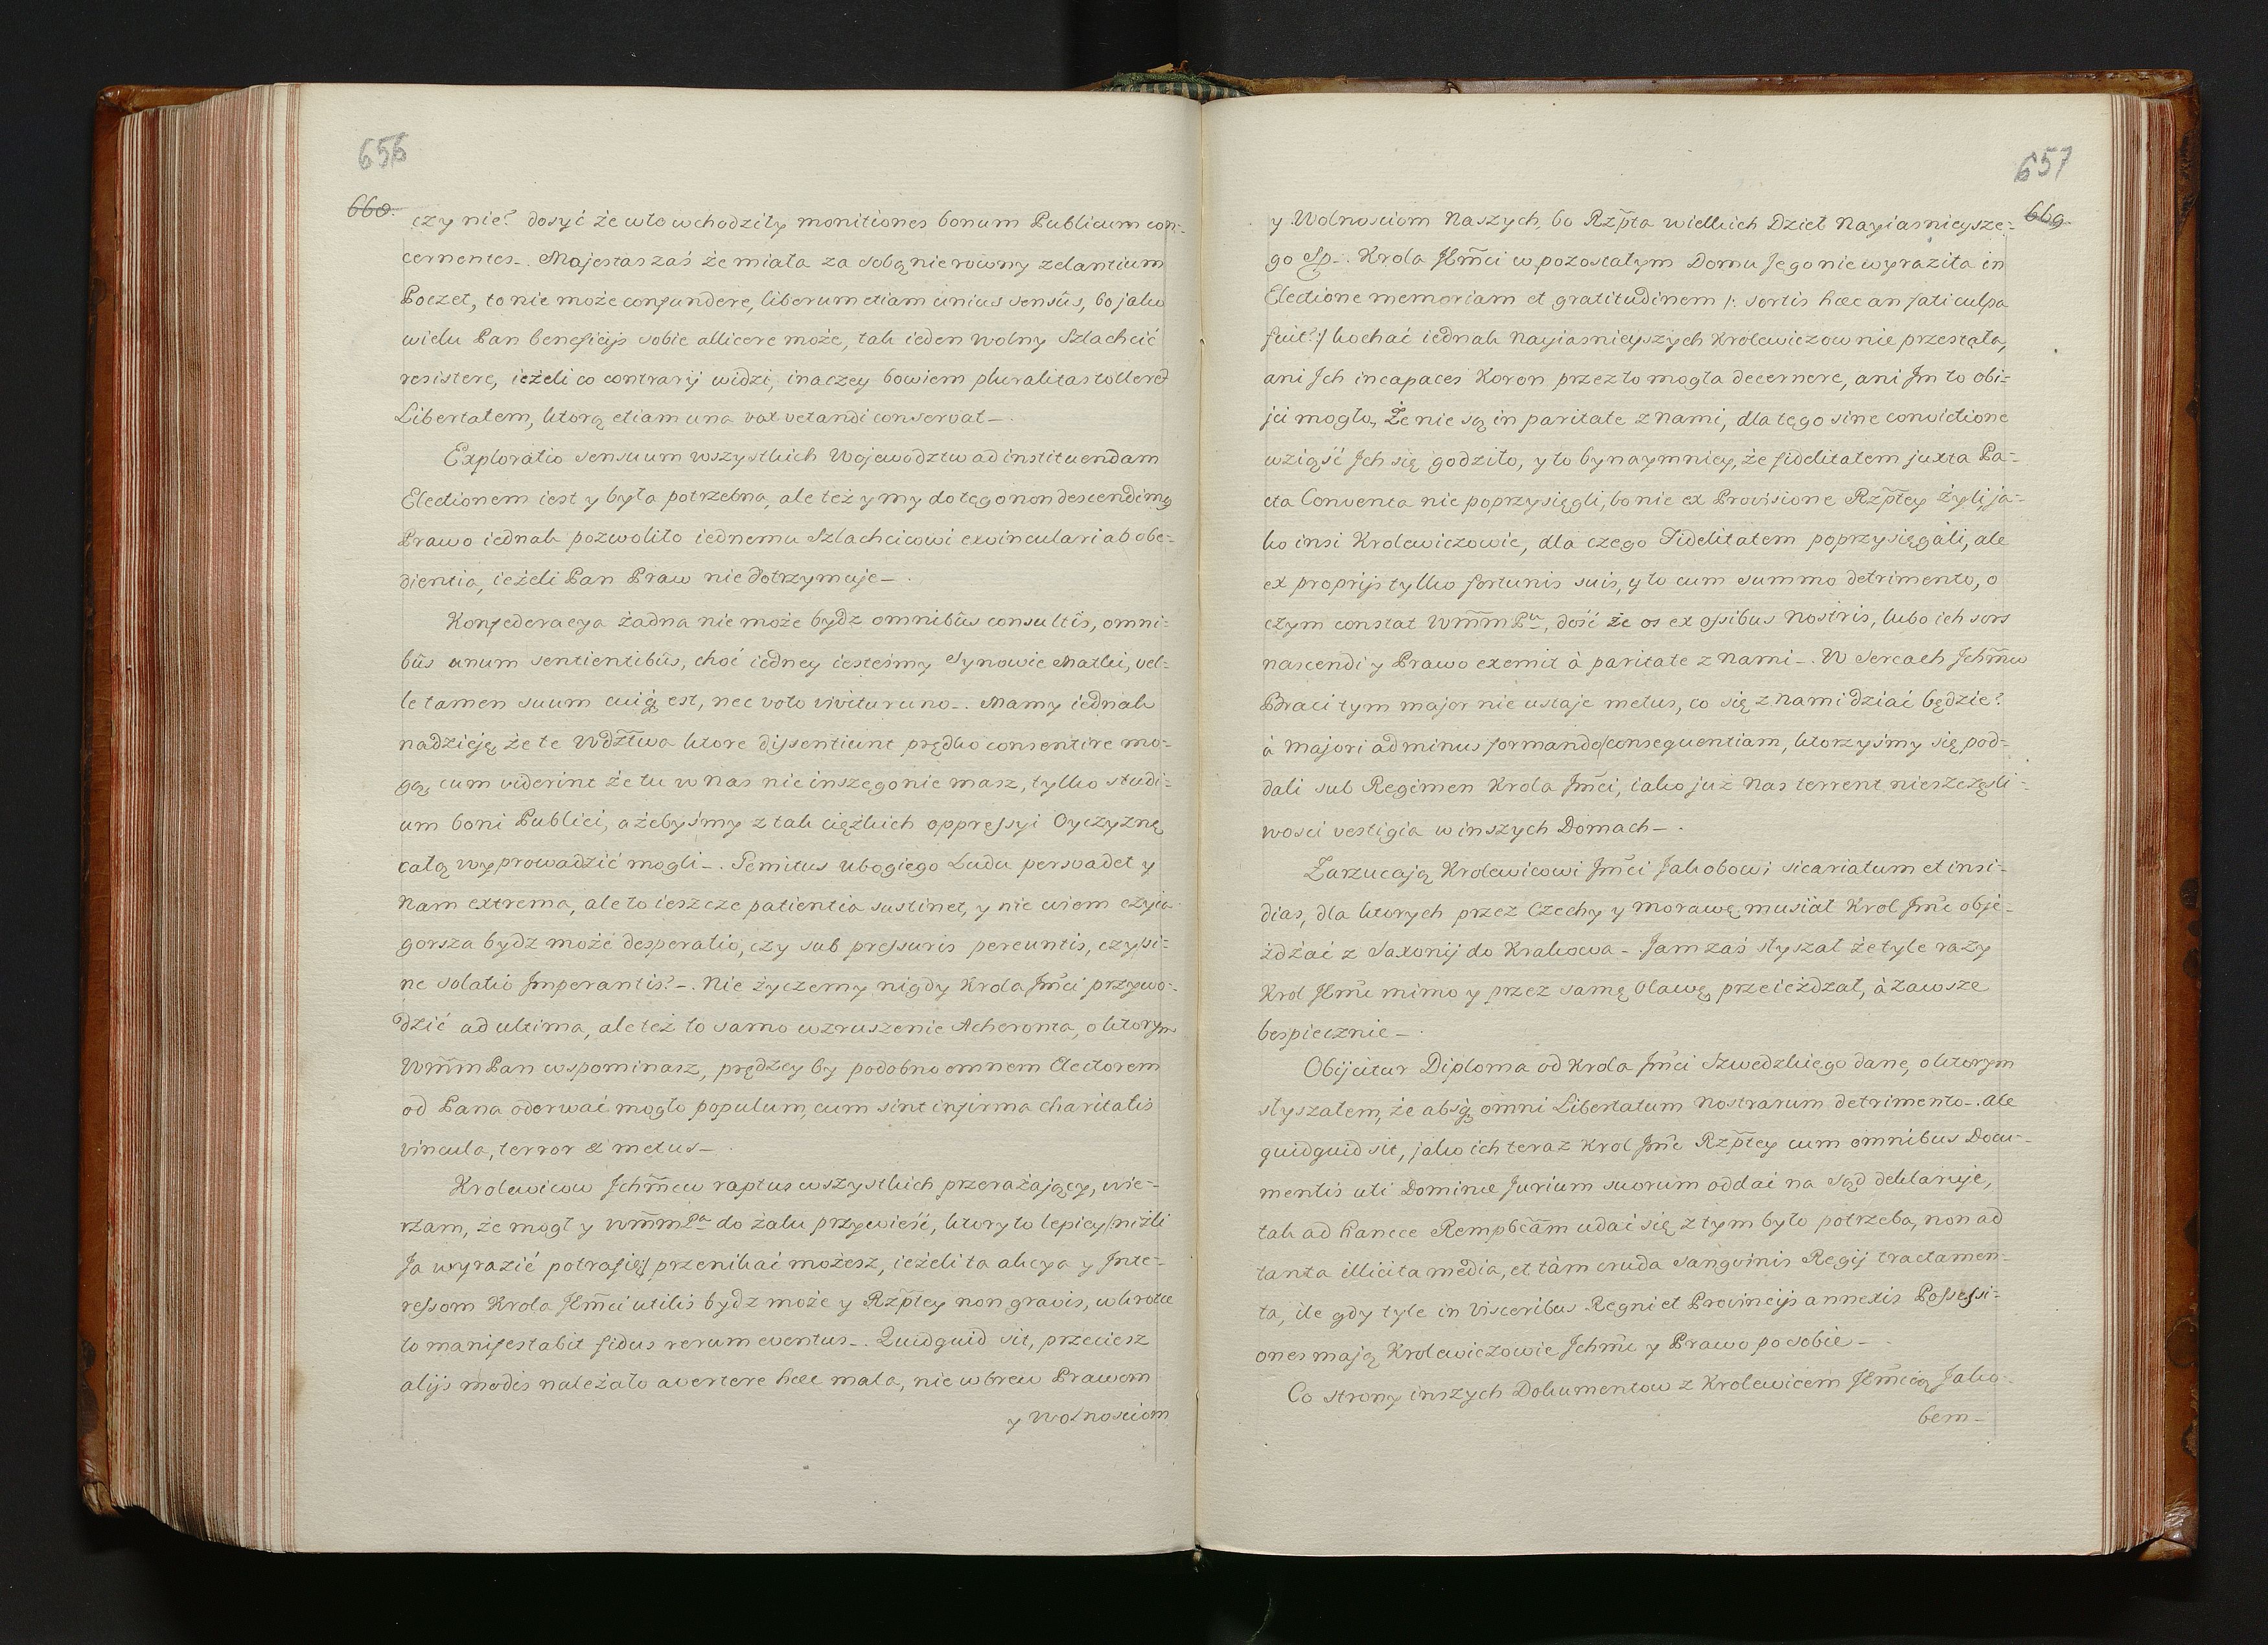 656
668.
czy nie? dosyć że w to wchodziły monitiones bonum Publicum con-
cernentes. Majestas zaś że miała za sobą nierowny zelantium
Poczet, to nie może confundere, liberum etiam unius sensûs, bo jako
wielu Pan beneficijs sobie allicere może, tak ieden wolny Szlachcić
resistere, ieżeli co contrarij widzi, inaczey bowiem pluralitas tolleret
Libertatem, ktorą etiam una vox vetandi conservat.
Exploratio sensuum wszystkich Wojewodztw ad instituendam
Electionem iest y była potrzebna, ale też y my do tego non descendimq
Prawo iednak pozwoliło iednemu Szlachcicowi exvinculari ab obe-
dientia, ieżeli Pan Praw nie dotrzymuje.
Konfederacya żadna nie może bydz omnibûs consultîs, omni-
bûs unum sentientibûs, choć iedney iesteśmy Synowie Matki, vel-
le tamen suum cuiq est, nec voto vivitur uno. Mamy iednak
nadzieję, że te Wdztwa ktore dissentiunt prędko consentire mo-
gą, cum viderint że tu w nas nic inszego nie masz, tylko studi-
um boni Publici, ażebyśmy z tak ciężkich oppressyi Oyczyznę
całą wyprowadzić mogli. Gemitus ubogiego Ludu persvadet y
nam extrema, ale to ieszcze patientia sustinet, y nie wiem czyia
gorsza bydz może desperatio, czy sub pressuris pereuntis, czy si-
ne solatio Imperantis? Nie życzemy nigdy Krola Jmci przywo-
dzić ad ultima, ale też to samo wzruszenie Acheronta, o ktorym
WmmPan wspominasz, prędzey by podobno omnem Electorem
od Pana oderwać mogło populum, cum sint infirma charitatis
vincula, terror & metus.
Krolewicow Jchmcw raptus wszystkich przerażający, wie-
rzam, że mogł y WmmPa do żalu przywieść, ktory to lepiey /niżli
Ja wyrazić potrafię/ przenikać możesz, ieżeli ta akcya y Inte-
ressom Krola JKmci utilis bydz może y Rzptey non gravis, wkrotce
to manifestabit fidus rerum eventus. Quidquid sit, przeciesz
alijs modis należało avertere hæc mala, nie wbrew Prawom
y Wolnosciom
657
669.
y Wolnosciom Naszych, bo Rzpta wielkich Dzieł Nayiasnieysze-
go Sp. Krola JKmci w pozostałym Domu Jego nie wyraziła in
Electione memoriam et gratitudinem /: sortis hæc an fati culpa
fuit? :/ kochać iednak Nayiasnieyszych Krolewiczow nie przestała,
ani Jch incapaces Koron przez to mogła decernere, ani Im to obi-
jci mogło, Że nie są in paritate z nami, dla tego sine convictione
wziąść Jch się godziło, y to bynaymniey, że fidelitatem juxta Pa-
cta Conventa nie poprzysięgli, bo nie ex Provisione Rzptey żyli, ja-
ko insi Krolewiczowie, dla czego Fidelitatem poprzysięgali, ale
ex proprijs tylko fortunis suis, y to cum summo detrimento, o
czym constat WmmPu, dość że os ex ossibus nostris, lubo ich sors
nascendi y Prawo exemit à paritate z nami. W sercach Jchmcw
Braci tym major nie ustaje metus, co się z nami dziać będzie?
à majori ad minus formando consequentiam, ktorzyśmy się pod-
dali sub Regimen Krola Jmci, iako już nas terrent nieszczęsli-
wosci vestigia w inszych Domach.
Zarzucają Krolewicowi Jmci Jakobowi sicariatum et insi-
dias, dla ktorych przez Czechy y Morawę musiał Krol Jmc obje-
żdżać z Saxonij do Krakowa. Jam zaś słyszał że tyle razy
Krol JKmc mimo y przez samę Oławę przeieżdzał, à zawsze
bespiecznie.
Obijcitur Diploma od Krola Jmci Szwedzkiego dane, o ktorym
słyszałem, że absq omni Libertatum Nostrarum detrimento. ale
quidquid sit, jako ich teraz Krol Jmc Rzptey cum omnibus Docu-
mentis uti Dominæ Jurium suorum oddać na Sąd deklaruje,
tak ad hancce Rempbcam udać się z tym było potrzeba, non ad
tanta illicita media, et tàm cruda sangvinis Regij tractamen-
ta, ile gdy tyle in visceribus Regni et Provincijs annexis Possessi-
ones mają Krolewiczowie Jchmc y Prawo po sobie.
Co strony inszych Dokumentow z Krolewicem JKmcią Jako-
bem